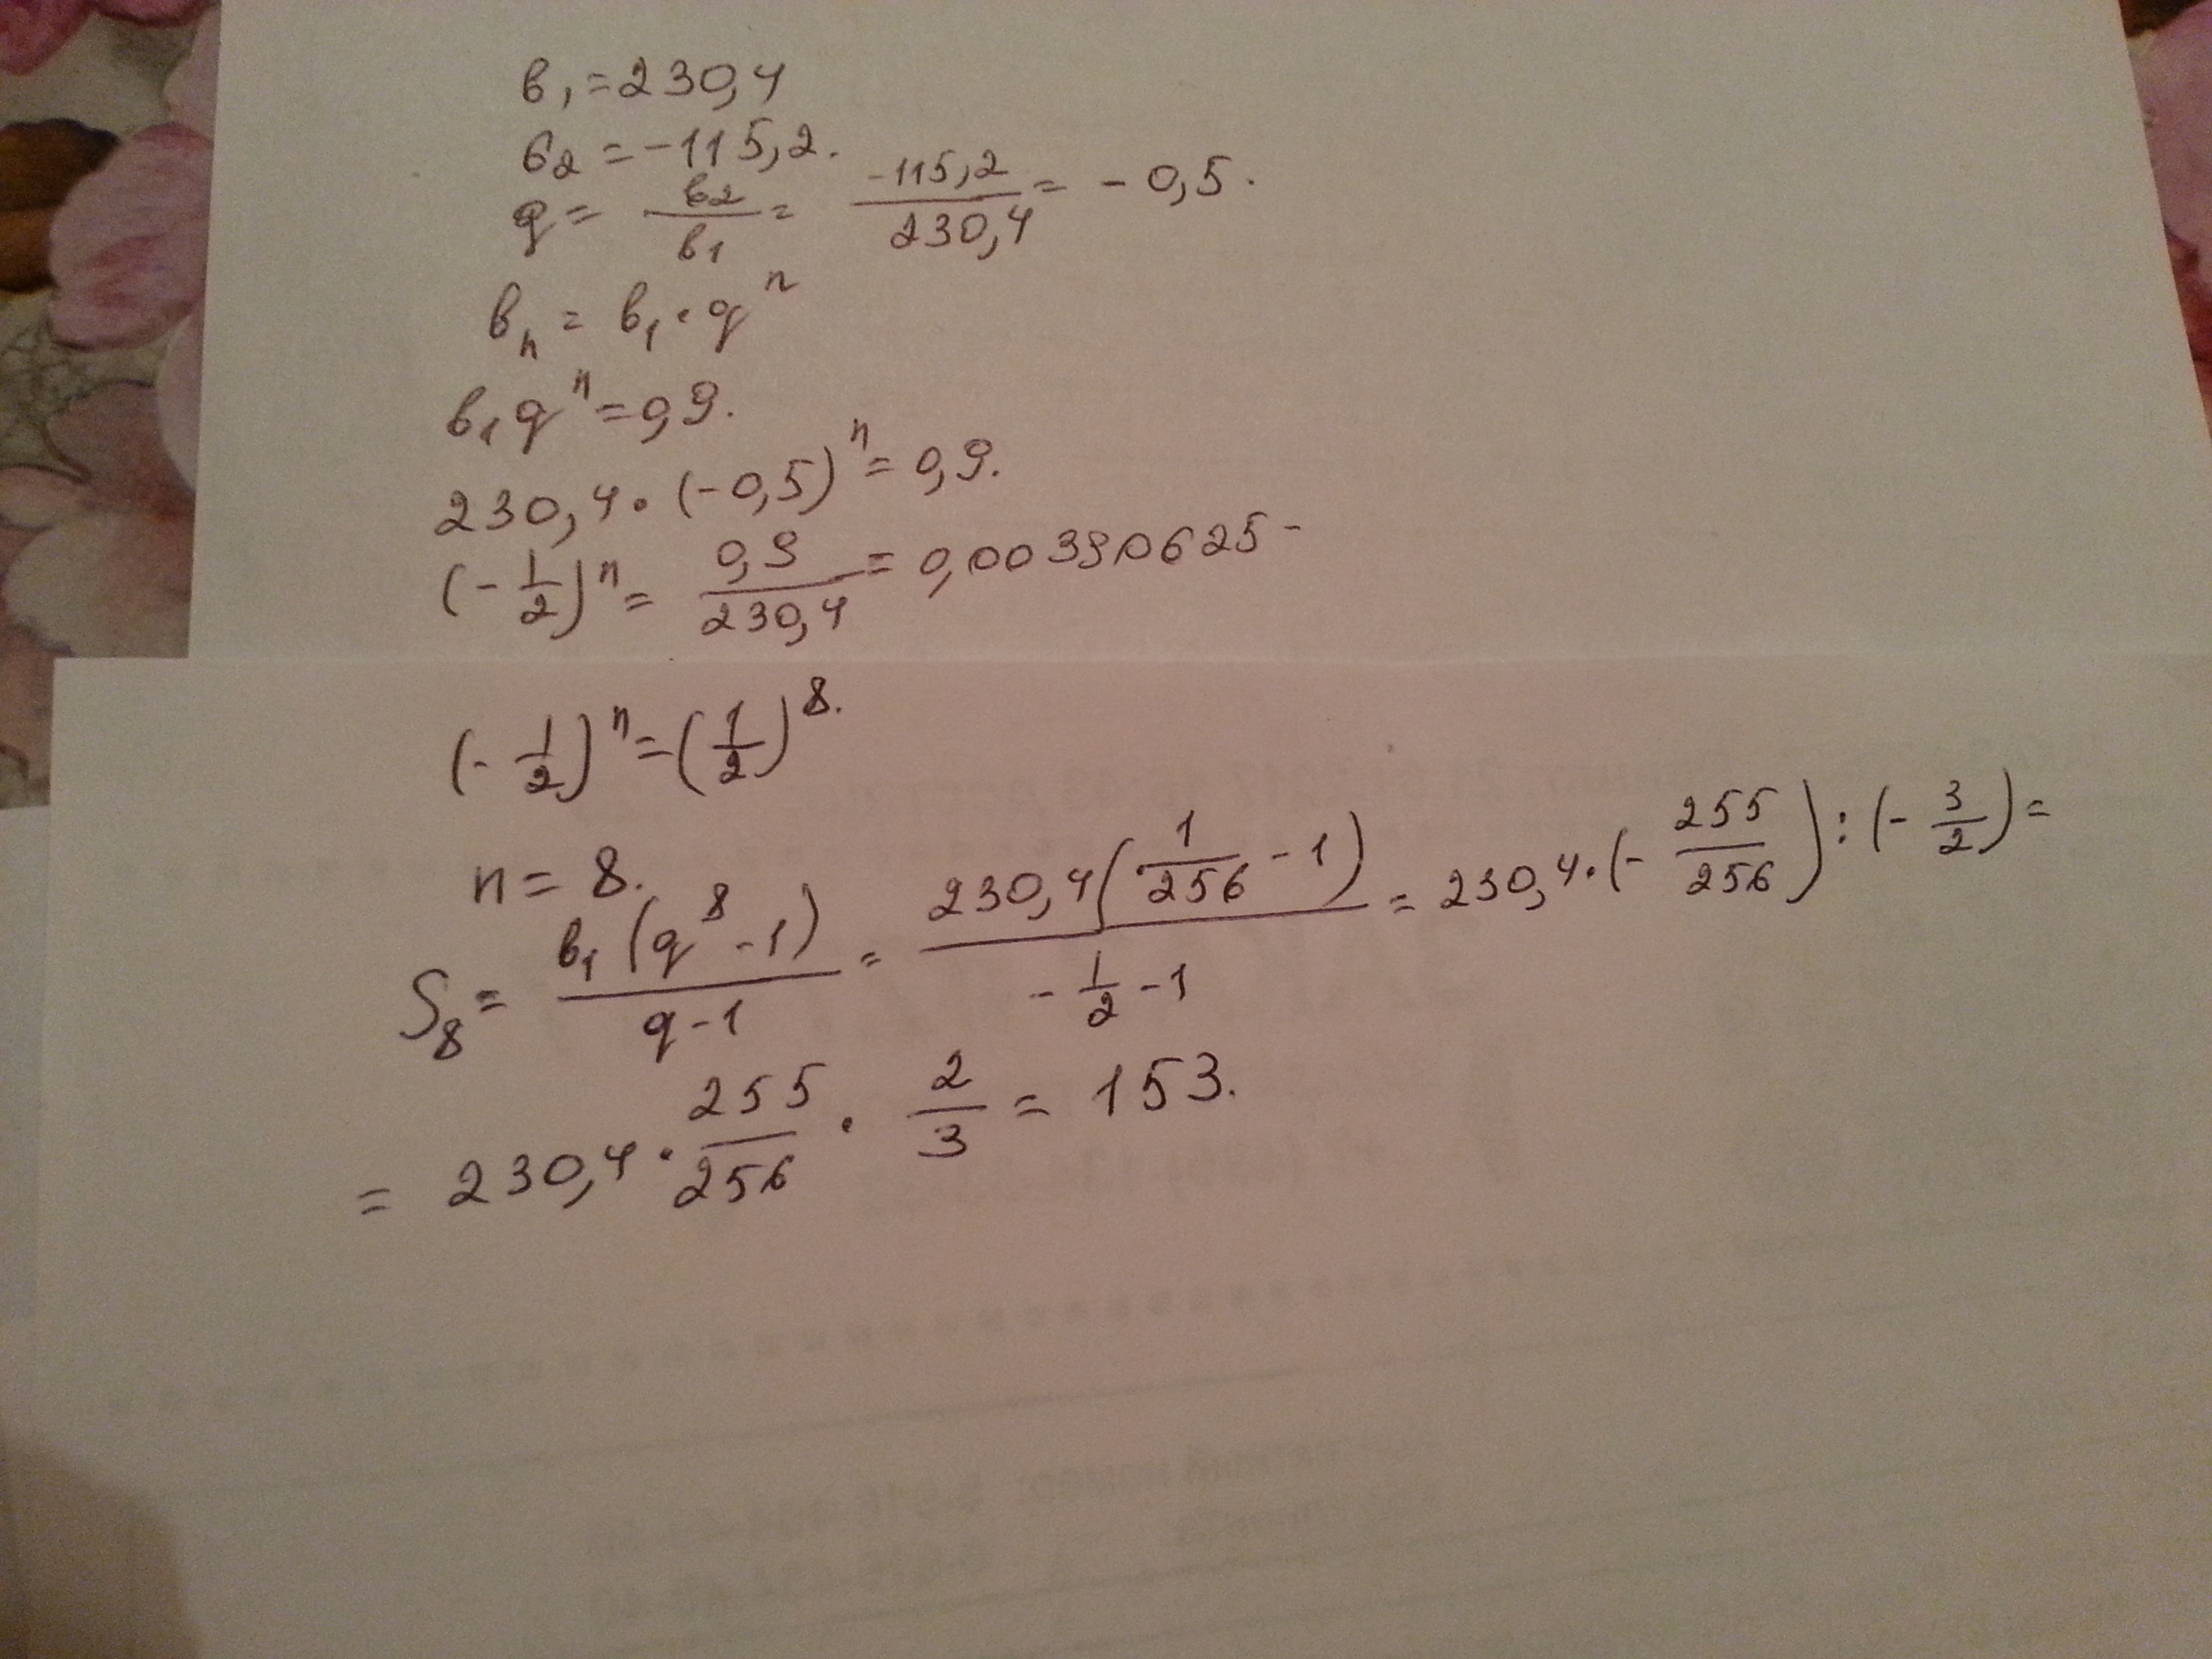 в₁ = 230,4
в₂ = -115,2.
q = в₂/в₁ = -115,2/230,4 = -0,5.
вₙ = в₁ · qⁿ
в₁qⁿ = 0,9.
230,4 · (-0,5)ⁿ = 0,9.
(-1/2)ⁿ = 0,9/230,4 = 0,00390625 -
(-1/2)ⁿ = (1/2)⁸.
n = 8.
S₈ = в₁(q⁸-1)/(q-1) = 230,4(1/256 - 1)/(-1/2 - 1) = 230,4 · (-255/256) : (-3/2) =
= 230,4 · 255/256 · 2/3 = 153.